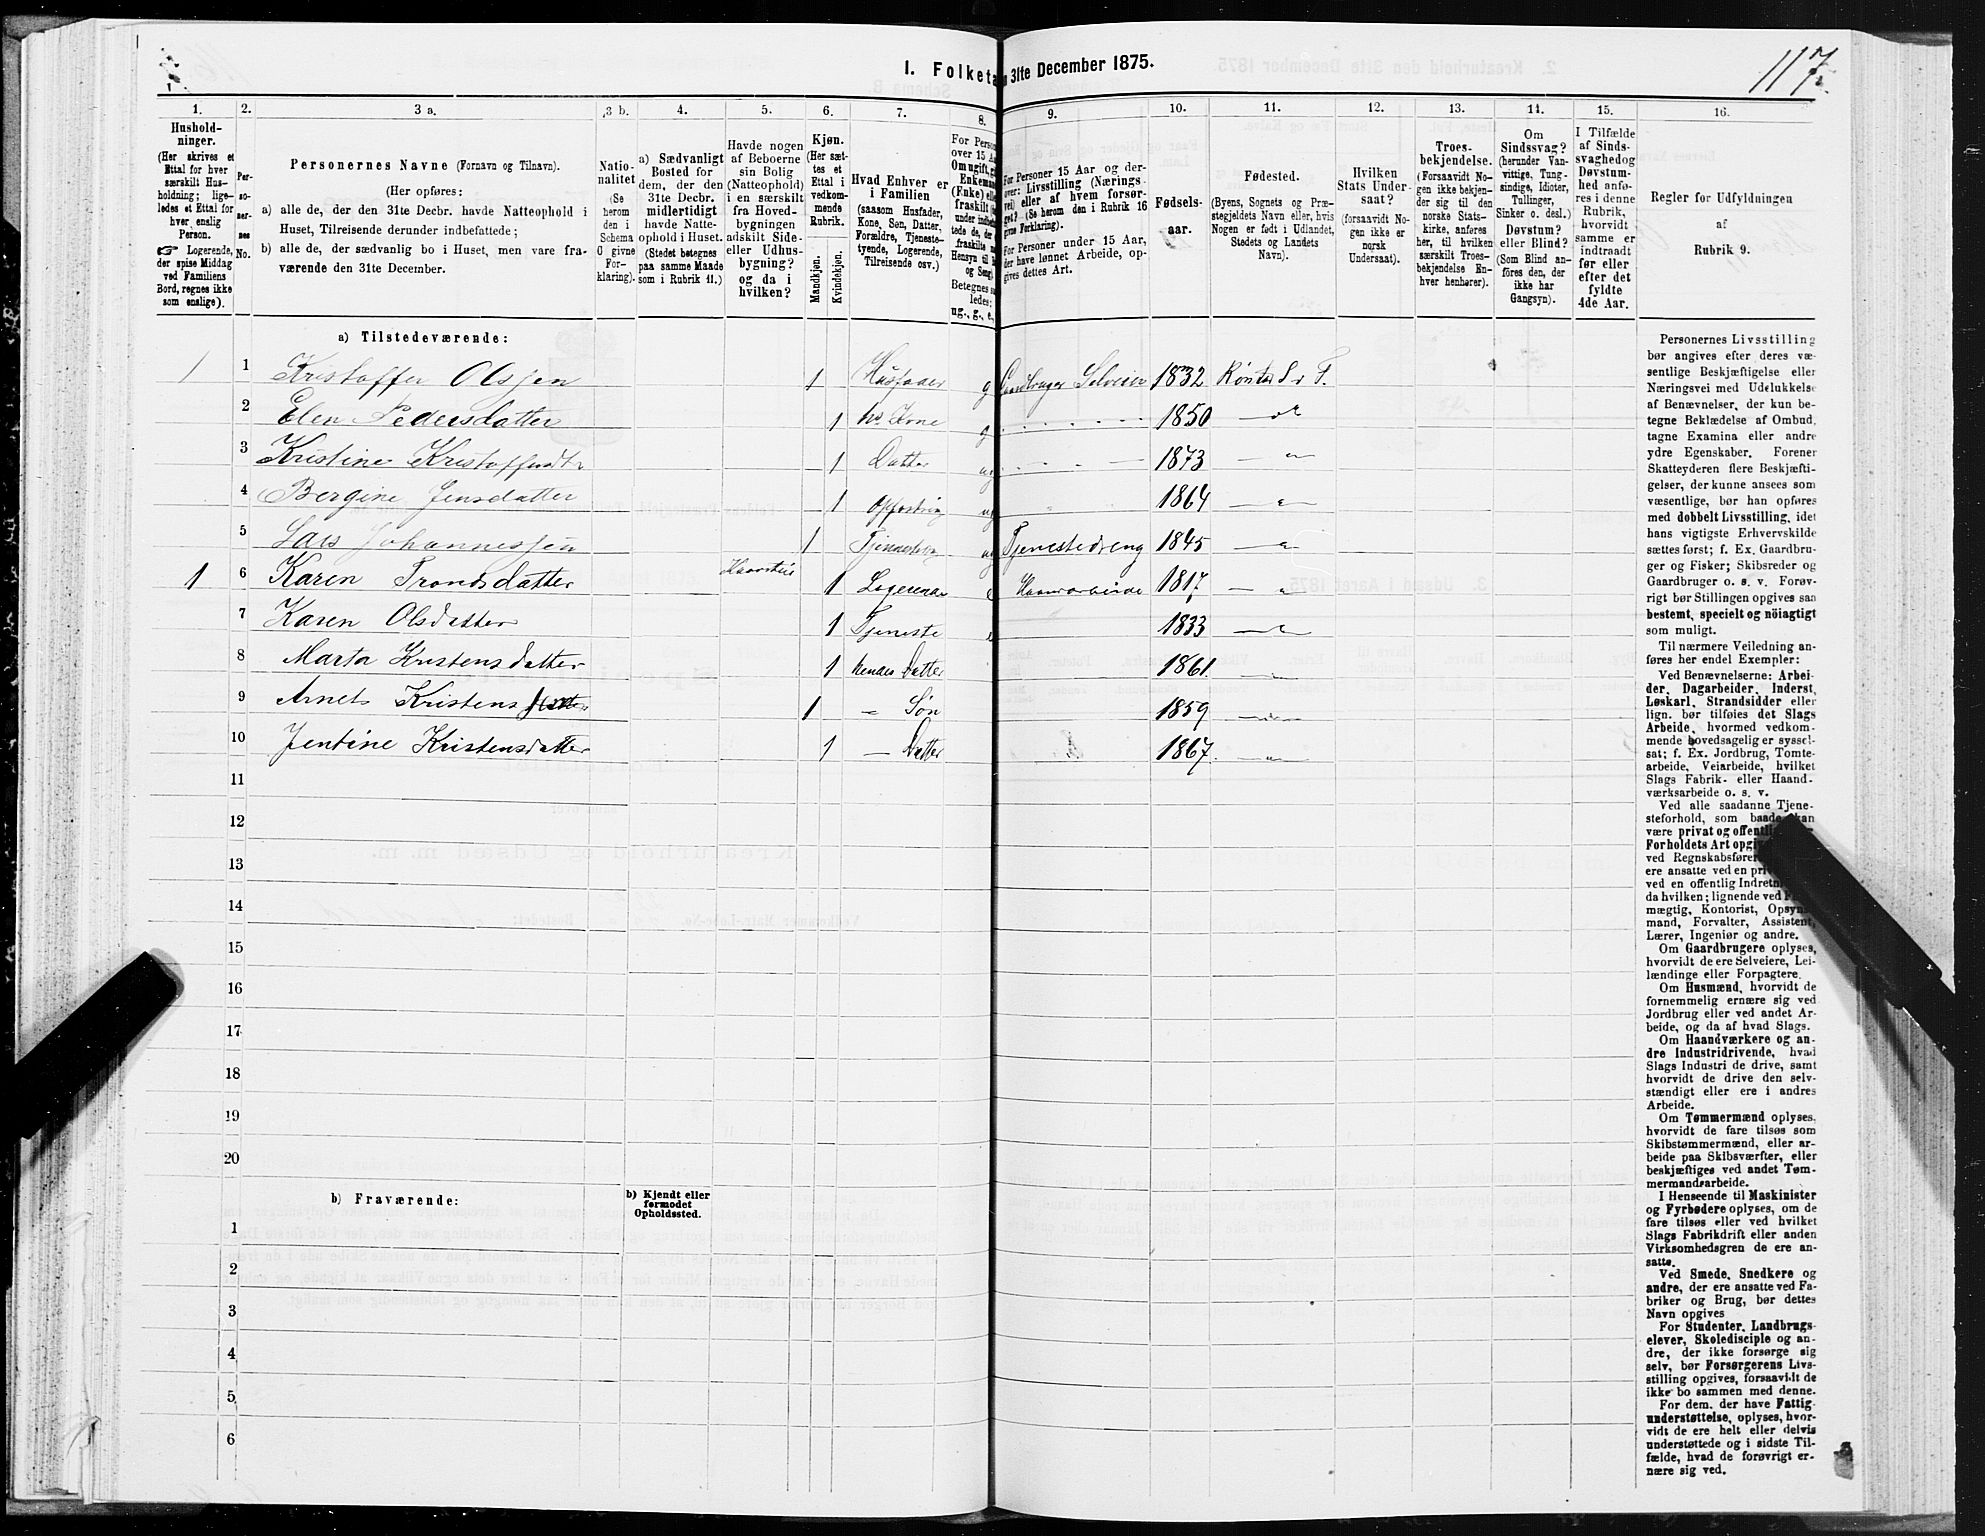 I. Folketa 31te December 1875.
117
1. 2. 3 a. 3 b. 4. 5. 6. 7. 8. 9. 10. 11. 12. 13. 14. 15. 16.
Hushold-
ninger.
(Her skrives et
Ettal for hver
særskilt Hus-
holdning; lige-
ledes et Ettal for
hver enslig
Person.
☞ Logerende,
der spise Middag
ved Familiens
Bord, regnes ikke
som enslige).
Per-
so-
ner-
nes
No.
Personernes Navne (Fornavn og Tilnavn).
(Her opføres:
a) alle de, der den 31te Decbr. havde Natteophold i
Huset, Tilreisende derunder indbefattede;
b) alle de, der sædvanlig bo i Huset, men vare fra-
værende den 31te December.
Natio-
nalitet
(Se
herom
den i
Schema
C givne
For-
klaring).
a) Sædvanligt
Bosted for
dem, der den
31te Decbr.
midlertidigt
havde Natte-
ophold i Huset.
(Stedet betegnes
paa samme Maade
som i Rubrik 11.)
Havde nogen
af Beboerne
sin Bolig
(Natteophold)
i en særskilt
fra Hoved-
bygningen
adskilt Side-
eller Udhus-
bygning?
og da i
hvilken?
Kjøn.
(Her sæt-
tes et
Ettal i
vedkom-
mende
Rubrik.
Mandkjøn.
Kvindekjøn.
Hvad Enhver er
i Familien
(saasom Husfader,
Kone, Søn, Datter,
Forældre, Tjeneste-
tyende, Logerende,
Tilreisende osv.)
For Person
over 15 A
Om ugift, g
Enkema
(Enke) el
fraskilt
under
tede de, der
fraskilte
Hensyn til
og Seng
Betegnes s
ledes:
ug., g., e.,
For Personer 15 Aar og der-
over: Livsstilling (Nærings-
vei) eller af hvem forsør-
get? (Se herom den i Rubrik 16
givne Forklaring).
For Personer under 15 Aar,
der have lønnet Arbeide, op-
gives dettes Art.
Fødsels-
aar.
Fødested.
(Byens, Sognets og Præ-
stegjeldets Navn eller, hvis
Nogen er født i Udlandet,
Stedets og Landets
Navn).
Hvilken
Stats Under-
saat?
(forsaavidt No-
gen ikke er
norsk
Undersaat).
Troes-
bekjendelse.
(Forsaavidt No-
gen ikke bekjen-
der sig til den
norske Stats-
kirke, anføres
her, til hvilken
særskilt Troes-
bekjendelse En-
hver henhører).
Om
Sindssvag?
(herunder Van-
vittige, Tung-
sindige, Idioter,
Tullinger,
Sinker o. desl.)
Døvstum?
eller Blind?
(Som Blind an-
føres den, der
ikke har
Gangsyn).
I Tilfælde
af Sinds-
svaghed og
Døvstum-
hed anfø-
res i denne
Rubrik,
hvorvidt
samme er
indtraadt
før eller
efter det
fyldte
4de Aar.
Regler for Udfyldningen
af
Rubrik 9.
a) Tilstedeværende:
1 1 Kristoffer Olsjen 1 Husfader g Gaardbruger Selveier 1832 S r F.
2 Elen Pedersdatter 1 hs Kone g 1850
3 Kristine 1 Datter ug 1873
4 Bergine Jensdatter 1 ug 1864
5 Lars Johannesjen 1 ug Tjenestedreng 1845
1 6 Karen Trondsdatter 1 e Haandarbeide 1817
7 Karen Olsdatter 1 Tjeneste 1833
8 Marta Kristensdatter 1 hendes Datter 1861
9 Kristens 1 " Søn 1859
10 Jentine Kristensdatter 1 — Datter 1867
11
12
13
14
15
16
17
18
19
20
b) Fraværende:
b) Kjendt eller
formodet
Opholdssted.
1
2
3
4
5
6
Personernes Livsstilling
bør angives efter deres væ-
sentlige Beskjæftigelse eller
Næringsvei med Udelukkelse
af Benævnelser, der kun be-
tegne Beklædelse af Ombud,
tagne Examina eller andre
ydre Egenskaber. Forener
Skatteyderen flere Beskjæfti-
gelser, der kunne ansees som
væsentlige, bør han opføres
med dobbelt Livsstilling, idet
hans vigtigste Erhvervskilde
sættes først; f. Ex. Gaardbru-
ger og Fisker; Skibsreder og
Gaardbruger o. s. v. Forøv-
rigt bør Stillingen opgives saa
bestemt, specielt og nöiagtigt
som muligt.
Til nærmere Veiledning an-
føres her endel Exempler:
Ved Benævnelserne: Arbei-
der, Dagarbeider, Inderst,
Løskarl, Strandsidder eller
lign. bør tilføies det Slags
Arbeide, hvormed vedkom-
mende hovedsagelig er syssel-
sat; f. Ex. Jordbrug, Tomte-
arbeide, Veiarbeide, hvilket
Slags Fabrik- eller Haand-
værksarbeide o. s. v.
Ved alle saadanne Tjene-
steforhold, som baade kan
være privat og offentlig
Forholdets Art opgiv
ved Regnskabsfører
ere ansatte ved en pri
ved en offentlig Indretn
da hvilken; lignende ved
mægtig, Kontorist, Opsyns-
mand, Forvalter, Assistent,
Lærer, Ingeniør og andre.
Om Gaardbrugere oplyses,
hvorvidt de ere Selveiere, Lei-
lændinge eller Forpagtere.
Om Husmænd, hvorvidt de
fornemmelig ernære sig ved
Jordbrug eller ved andet Ar-
beide, og da af hvad Slags.
Om Haandværkere og an-
dre Industridrivende, hvad
Slags Industri de drive, samt
hvorvidt de drive den selv-
stændigt eller ere i andres
Arbeide.
Om Tømmermænd oplyses,
hvorvidt de fare tilsøs som
Skibstømmermænd, eller ar-
beide paa Skibsværfter, eller
beskjæftiges ved andet Tøm-
mermandsarbeide.
I Henseende til Maskinister
og Fyrbødere oplyses, om de
fare tilsøs eller ved hvilket
Slags Fabrikdrift eller anden
Virksomhedsgren de ere an-
satte.
Ved Smede, Snedkere og
andre, der ere ansatte ved Fa-
briker og Brug, bør dettes
Navn opgives
For Studenter, Landbrugs-
elever, Skoledisciple og an-
dre, der ikke forsørge sig
selv, bør Forsørgerens Livs-
stilling opgives, forsaavidt de
ikke bo sammen med denne.
For dem, der have Fattig-
understøttelse, oplyses, hvor-
vidt de ere helt eller delvis
understøttede og i sidste Til-
fælde, hvad de forøvrigt er-
nære sig ved.